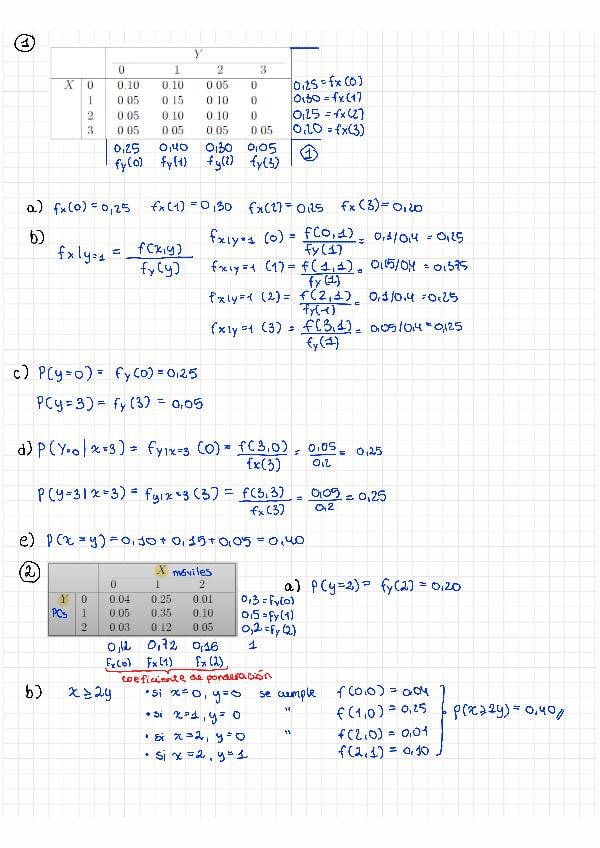 1
Y
0 1 2 3
X 0 0.10 0.10 0.05 0 0,25 = fx(0)
1 0.05 0.15 0.10 0 0,30 = fx(1)
2 0.05 0.10 0.10 0 0,25 = fx(2)
3 0.05 0.05 0.05 0.05 0,20 = fx(3)
0,25 0,40 0,30 0,05 1
fy(0) fy(1) fy(2) fy(3)
a) fx(0) = 0,25 fx(1) = 0,30 fx(2) = 0,25 fx(3) = 0,20
b) fx|y=1 = f(x,y)/fy(y)
fx|y=1 (0) = f(0,1)/fy(1) = 0,1/0,4 = 0,25
fx|y=1 (1) = f(1,1)/fy(1) = 0,15/0,4 = 0,375
fx|y=1 (2) = f(2,1)/fy(1) = 0,1/0,4 = 0,25
fx|y=1 (3) = f(3,1)/fy(1) = 0,05/0,4 = 0,25
c) P(y=0) = fy(0) = 0,25
P(y=3) = fy(3) = 0,05
d) P(Y=0|x=3) = fy|x=3 (0) = f(3,0)/fx(3) = 0,05/0,2 = 0,25
P(y=3|x=3) = fy|x=3 (3) = f(3,3)/fx(3) = 0,05/0,2 = 0,25
e) P(x=y) = 0,10 + 0,15 + 0,05 = 0,40
2
X móviles
0 1 2
Y 0 0.04 0.25 0.01 0,3 = fy(0)
PCs 1 0.05 0.35 0.10 0,5 = fy(1)
2 0.03 0.12 0.05 0,2 = fy(2)
0,12 0,72 0,16 1
fx(0) fx(1) fx(2)
coeficiente de ponderación
a) P(y=2) = fy(2) = 0,20
b) x ≥ 2y • si x=0, y=0 se cumple f(0,0) = 0,04
• si x=1, y=0 " f(1,0) = 0,25 P(x≥2y) = 0,40//
• si x=2, y=0 " f(2,0) = 0,01
• si x=2, y=1 f(2,1) = 0,10